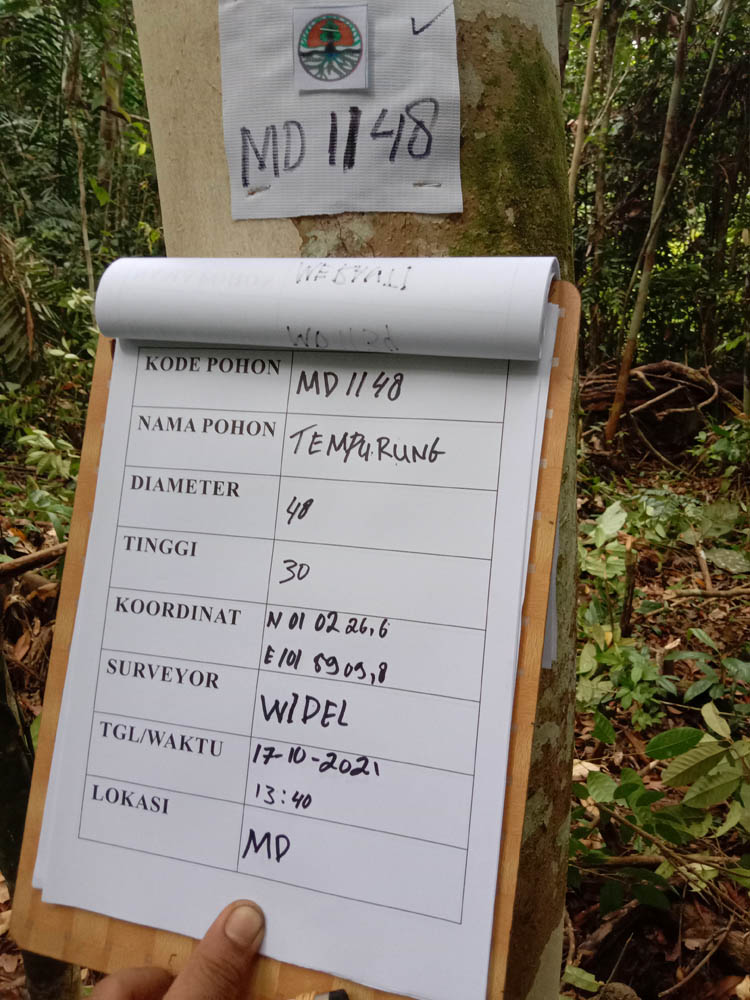 MD 1148
KODE POHON
MD 1148
NAMA POHON
TEMPURUNG
DIAMETER
48
TINGGI
30
KOORDINAT
N 01 02 26,6
E 101 59 09,8
SURVEYOR
WIDEL
TGL/WAKTU
17-10-2021
13:40
LOKASI
MD